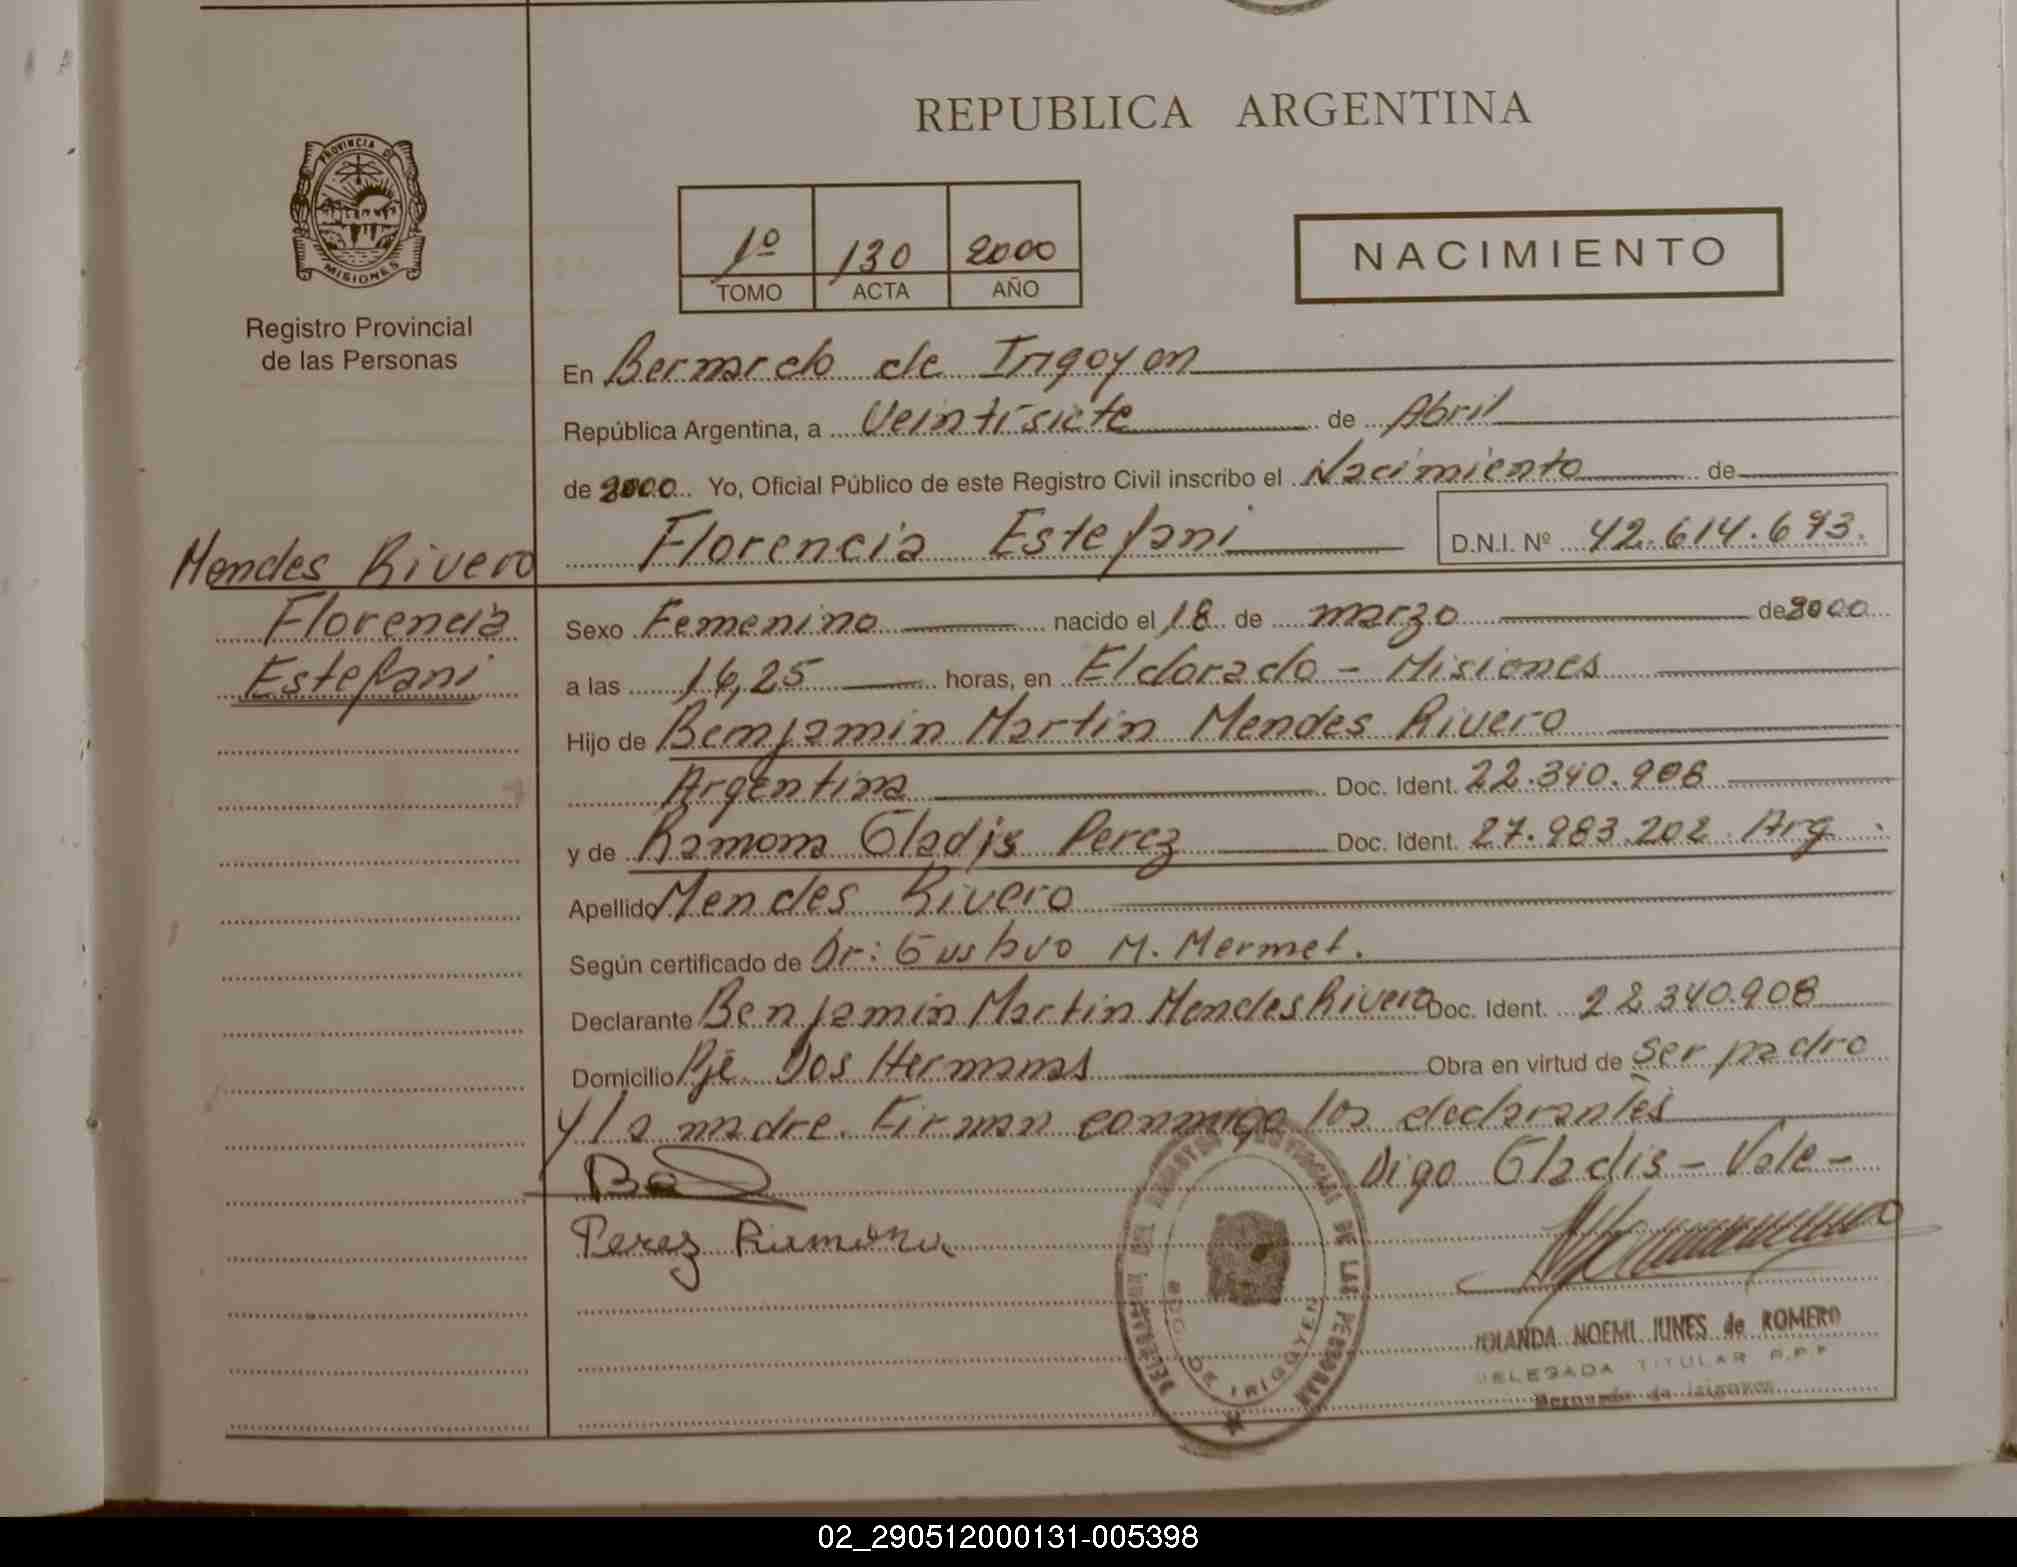 REPUBLICA ARGENTINA
PROVINCIA DE
MISIONES
Registro Provincial
de las Personas
1º 130 2000
TOMO ACTA AÑO
NACIMIENTO
En Bernardo de Irigoyen
República Argentina, a Veintisiete de Abril
de 2000 Yo, Oficial Público de este Registro Civil inscribo el Nacimiento de
Florencia Estefani D.N.I. Nº 42.614.673.
Mendes Rivero
Florencia
Estefani
Sexo Femenino nacido el 18 de marzo de 2000
a las 16,25 horas, en Eldorado - Misiones
Hijo de Benjamin Martin Mendes Rivero
Argentina Doc. Ident. 22.340.908
y de Ramona Gladjs Perez Doc. Ident. 27.983.202 Arg.
Apellido Mendes Rivero
Según certificado de Dr: Gustavo M. Mermet.
Declarante Benjamin Martin Mendes Rivero Doc. Ident. 22.340.908
Domicilio Pje Dos Hermanas Obra en virtud de Ser padre
y la madre. Firman conmigo los declarantes
Digo Gladis - Vale -
Perez Ramona
DE LAS PERSONAS
BDO. DE IRIGOYEN
YOLANDA NOEMI IUNES de ROMERO
DELEGADA TITULAR R.P.P.
Bernardo de Irigoyen
02_290512000131-005398